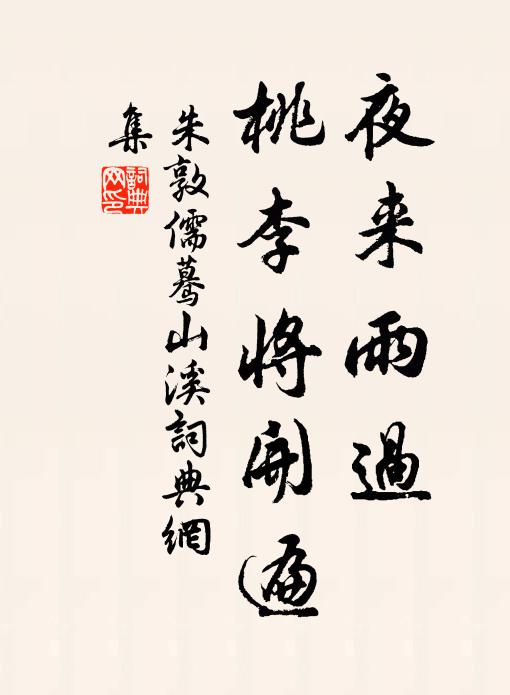 夜来雨過
桃李將開遍
朱敦儒蓦山溪詞典網
集
詞典
网印